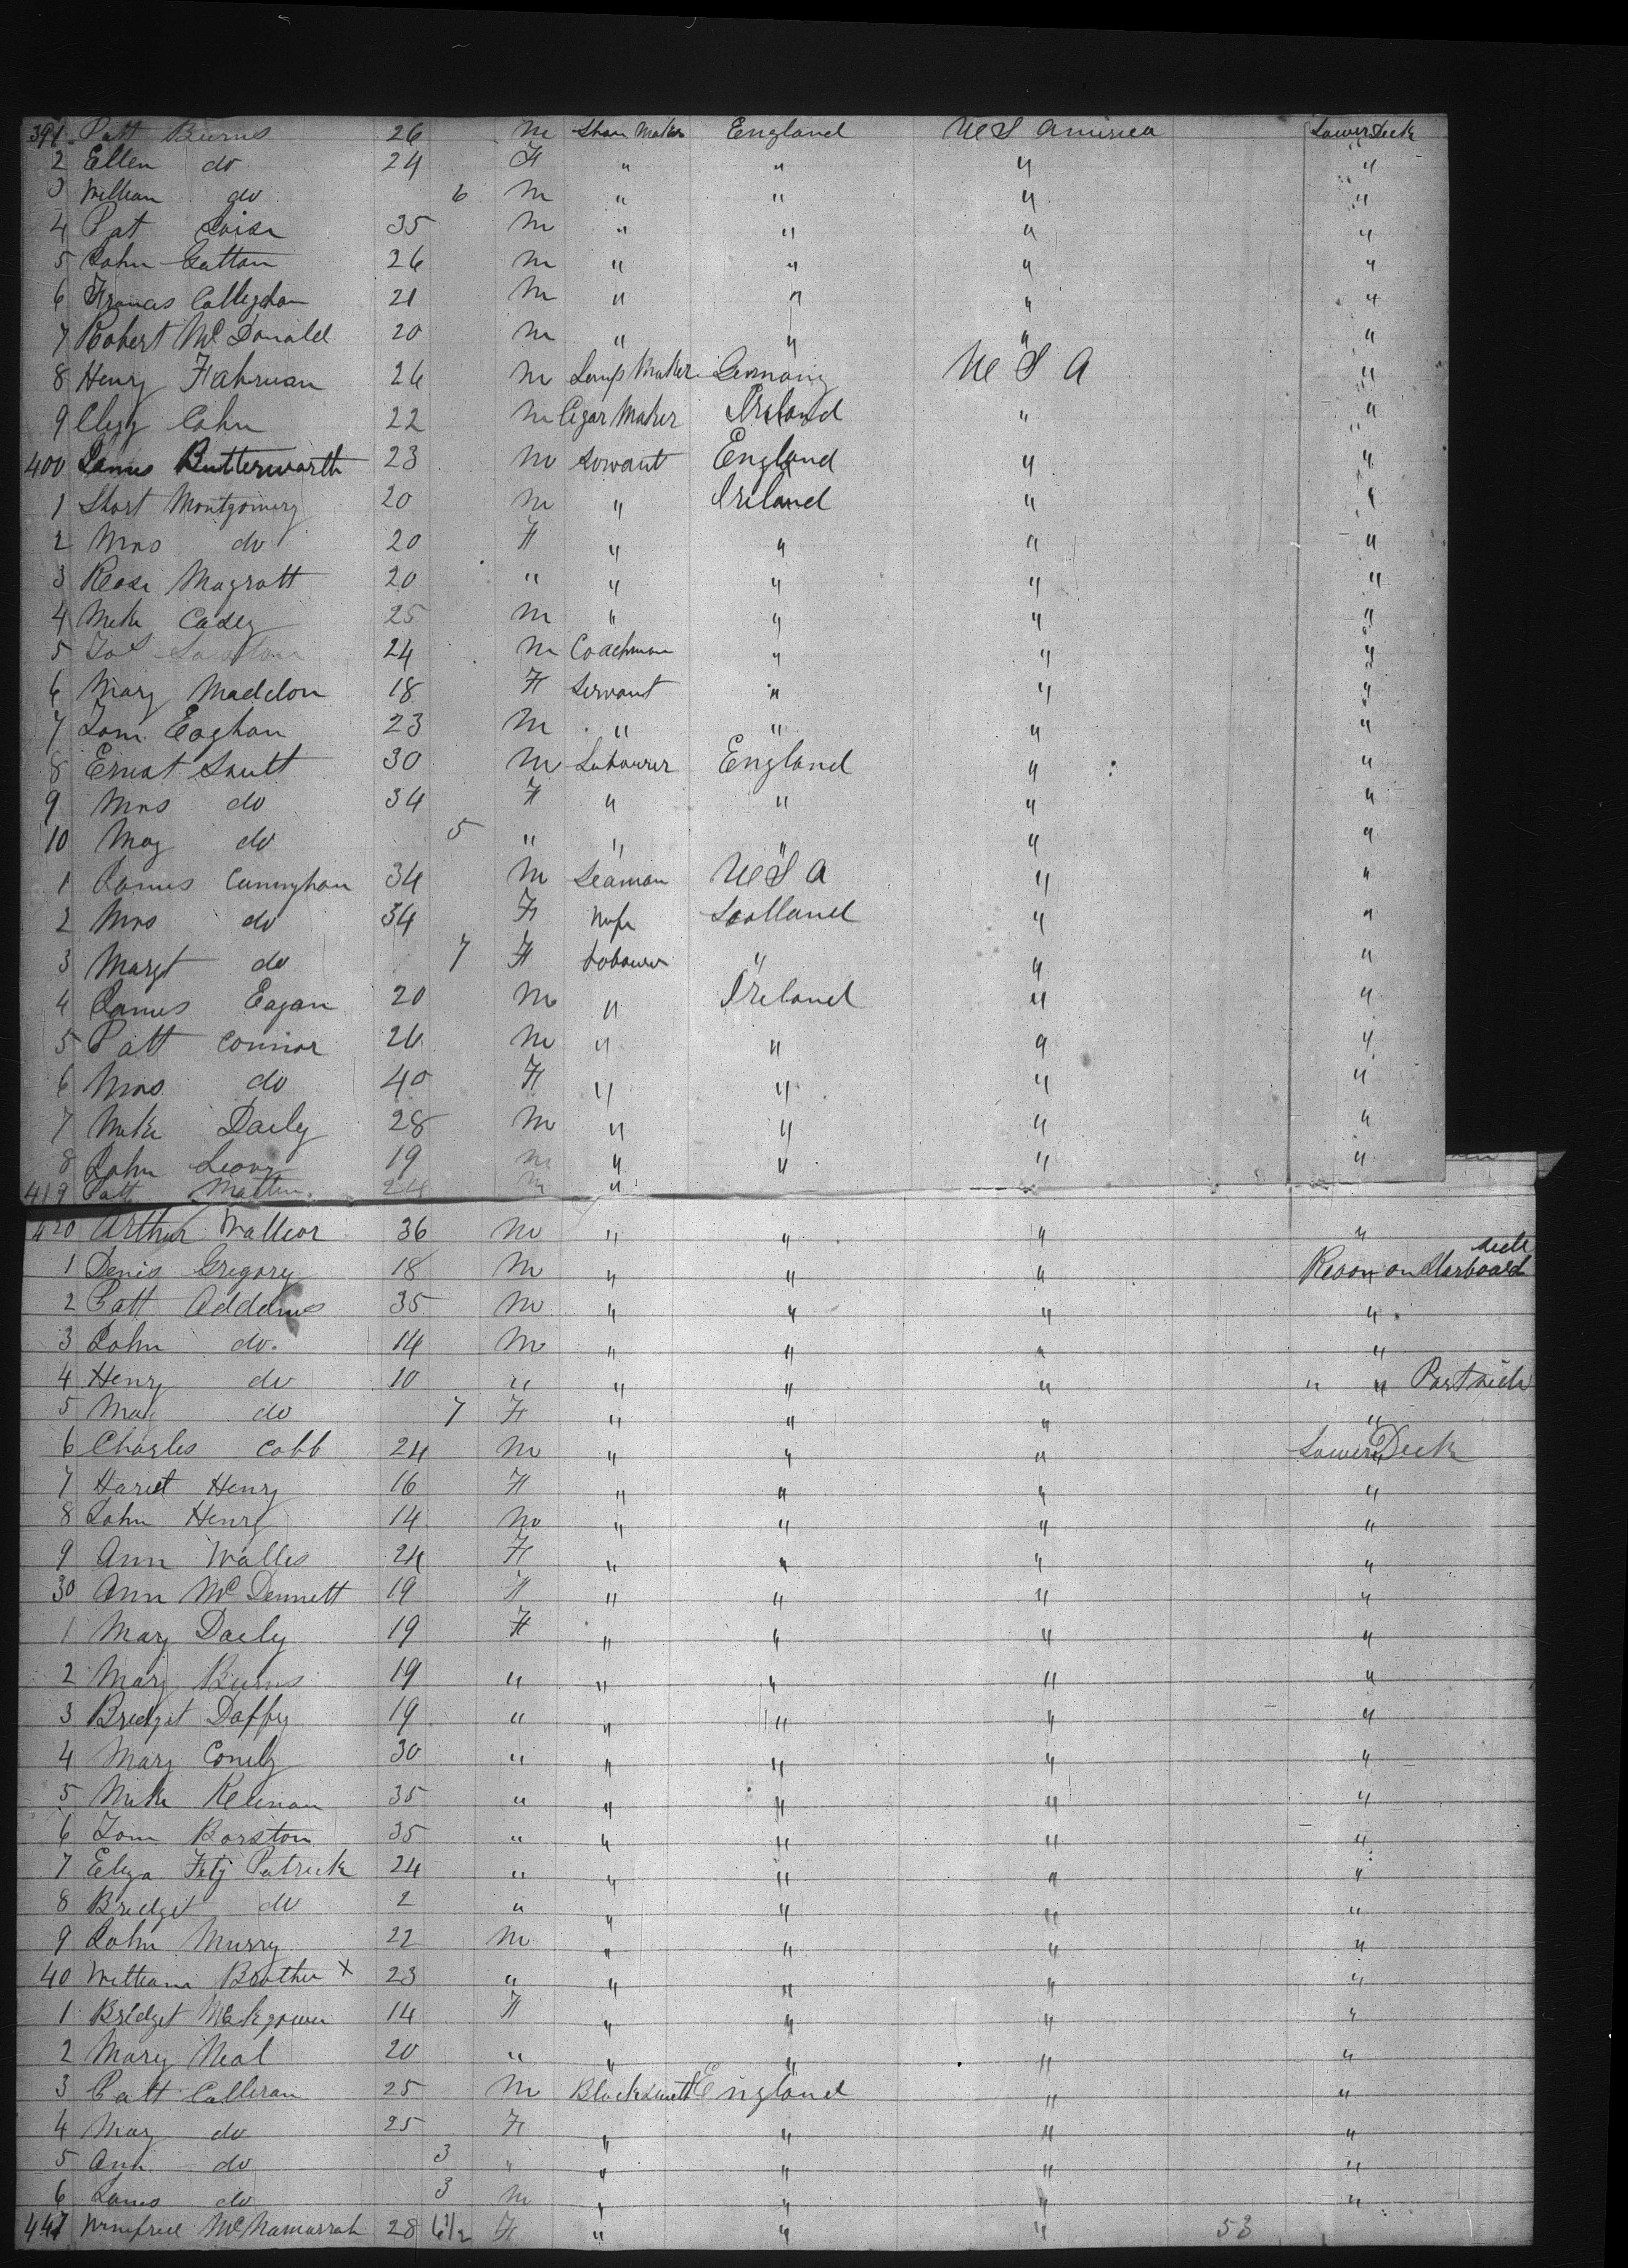 391 Patt Burns 26 M Shoe Maker England U S America Lower Deck
2 Ellen do 24 F " " " "
3 William do 6 M " " " "
4 Pat 35 M " " " "
5 John Gatton 26 M " " " "
6 Francis Calleghan 21 M " " " "
7 Robert Mc Donald 20 M " " " "
8 Henry Fahrman 26 M Lamp Maker Germany U S A "
9 Cahn 22 M Cigar Maker Ireland " "
400 James Butterworth 23 M Servant England " "
1 Short Montgomery 20 M " Ireland " "
2 Mrs do 20 F " " " "
3 Rose Magratt 20 " " " " "
4 Mike Casey 25 M " " " "
5 24 M Coachman " " "
6 Mary Madelon 18 F Servant " " "
7 Tom Eaghan 23 M " " " "
8 Ernest Smitt 30 M Labourer England " "
9 Mrs do 34 F " " " "
10 May do 5 " " " " "
1 James Cunnyham 34 M Seaman U S A " "
2 Mrs do 34 F Wife Scotland " "
3 Margt do 7 F Labourer " " "
4 James Eagan 20 M " Ireland " "
5 Patt Connor 26 M " " " "
6 Mrs do 40 F " " " "
7 Mike Daily 28 M " " " "
8 John Leary 19 M " " " "
419 Patt Martin 24 M "
420 Arthur Wallcor 36 M " " " "
1 Denis Gregory 18 M " " " Room on Starboard side
2 Patt Addams 35 M " " " "
3 John do. 14 M " " " "
4 Henry do 10 " " " " " " Port side
5 May do 7 F " " " "
6 Charles Cobb 24 M " " " Lower Deck
7 Hariet Henry 16 F " " " "
8 John Henry 14 M " " " "
9 Ann Walles 24 F " " " "
30 Ann Mc Dennett 19 F " " " "
1 Mary Daily 19 F " " " "
2 Mary Burns 19 " " " " "
3 Bridget Daffey 19 " " " " "
4 Mary Conely 30 " " " " "
5 Mike Keenan 35 " " " " "
6 Tom Barston 35 " " " " "
7 Eliza Fitz Patrick 24 " " " " "
8 Bridget do 2 " " " " "
9 John Murry 22 M " " " "
40 William Brother X 23 " " " " "
1 Bridget 14 F " " " "
2 Mary Neal 20 " " " " "
3 Patt Calleran 25 M Blacksmith England " "
4 May do 25 F " " " "
5 Ann do 3 " " " " "
6 James do 3 M " " " "
447 Winifred McNamarrah 28 6 1/2 F " " " 53